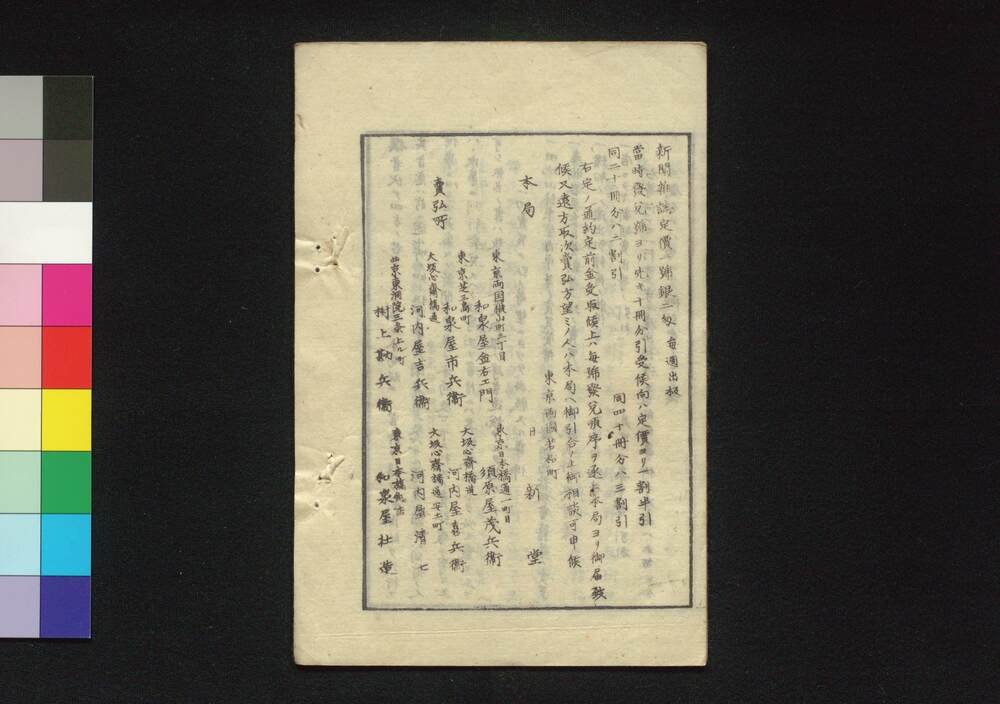 新聞雑誌定價一號銀二匁 毎週出板
當時發兌號ヨリ先キ十冊分引受候向ハ定價ヨリ一割半引
同二十冊分ハ二割引 同四十冊分ハ三割引
右定ノ通約定前金受取候上ハ毎號發兌順序ヲ逐ヒ本局ヨリ御届致
候又遠方取次賣弘方望ミノ人ハ本局ヘ御引合ノ上御相談可申候
東京両國若松町
本局 日新堂
賣弘所
東京両国横山町三丁目
和泉屋金右エ門
東京日本橋通一町目
須原屋茂兵衛
東京芝三島町
和泉屋市兵衛
大坂心齋橋通
河内屋喜兵衛
大坂心齋橋通
河内屋吉兵衛
大坂心齋橋通安土町
河内屋清七
西京東洞院三条上ル町
村上勘兵衛
東京日本橋
和泉屋壯藏